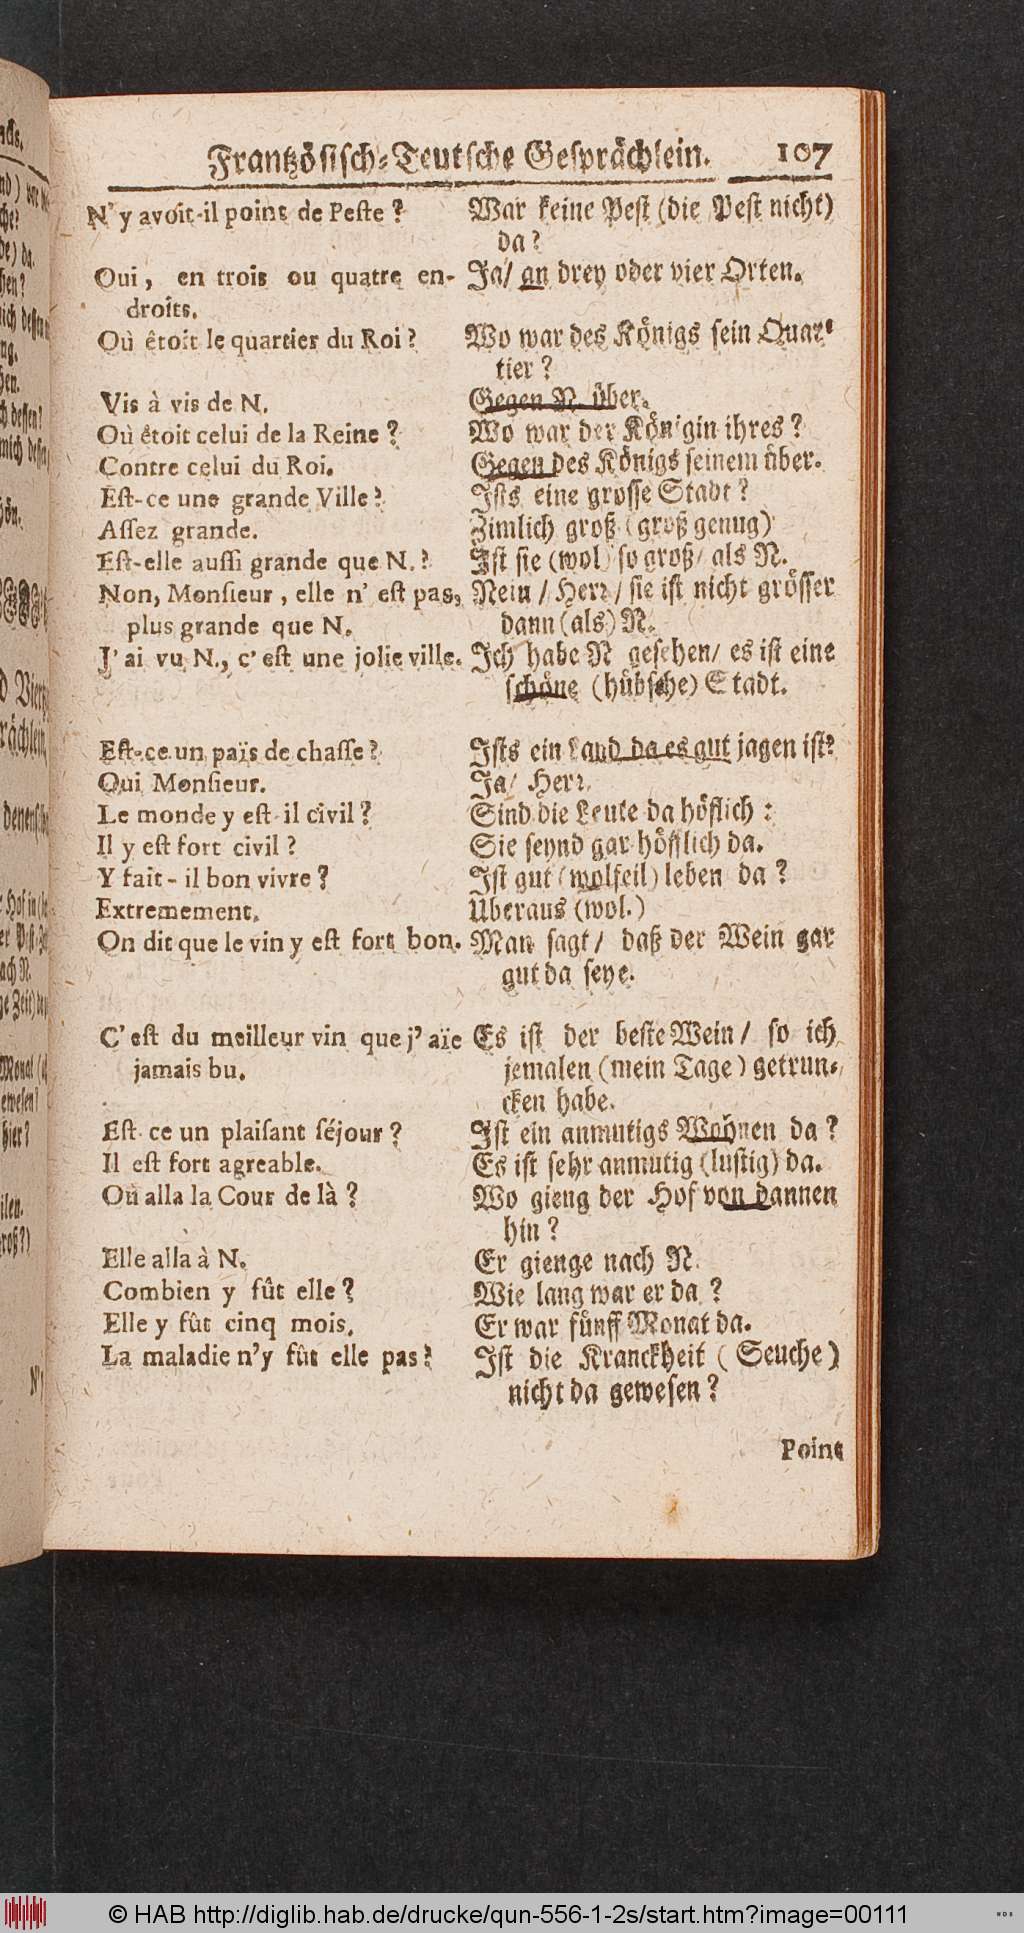 Frantzösisch-Teutsche Gesprächlein. 107
N'y avoit-il point de Peste?
Oui, en trois ou quatre en-
droits.
Où êtoit le quartier du Roi?
Vis à vis de N.
Où êtoit celui de la Reine?
Contre celui du Roi.
Est-ce une grande Ville?
Assez grande.
Est-elle aussi grande que N.?
Non, Monsieur, elle n' est pas,
plus grande que N.
J'ai vu N., c'est une jolie ville.
Est-ce un païs de chasse?
Oui Monsieur.
Le monde y est-il civil?
Il y est fort civil?
Y fait-il bon vivre?
Extremement.
On dit que le vin y est fort bon.
C'est du meilleur vin que j'aïe
jamais bu.
Est-ce un plaisant séjour?
Il est fort agreable.
Où alla la Cour de là?
Elle alla à N.
Combien y fût elle?
Elle y fût cinq mois.
La maladie n'y fût elle pas?
War keine Pest (die Pest nicht)
da?
Ja/ an drey oder vier Orten.
Wo war des Königs sein Quar-
tier?
Gegen N. über.
Wo war der Königin ihres?
Gegen des Königs seinem über.
Ists eine grosse Stadt?
Zimlich groß (groß genug)
Ist sie (wol) so groß/ als N.
Nein/ Herr/ sie ist nicht grösser
dann (als) N.
Ich habe N gesehen/ es ist eine
schöne (hübsche) Stadt.
Ists ein Land da es gut jagen ist?
Ja/ Herr.
Sind die Leute da höflich:
Sie seynd gar höfflich da.
Ist gut (wolfeil) leben da?
Uberaus (wol.)
Man sagt/ daß der Wein gar
gut da seye.
Es ist der beste Wein/ so ich
jemalen (mein Tage) getrun-
cken habe.
Ist ein anmutigs Wohnen da?
Es ist sehr anmutig (lustig) da.
Wo gieng der Hof von dannen
hin?
Er gienge nach N.
Wie lang war er da?
Er war fünff Monat da.
Ist die Kranckheit (Seuche)
nicht da gewesen?
Point
© HAB http://diglib.hab.de/drucke/qun-556-1-2s/start.htm?image=00111